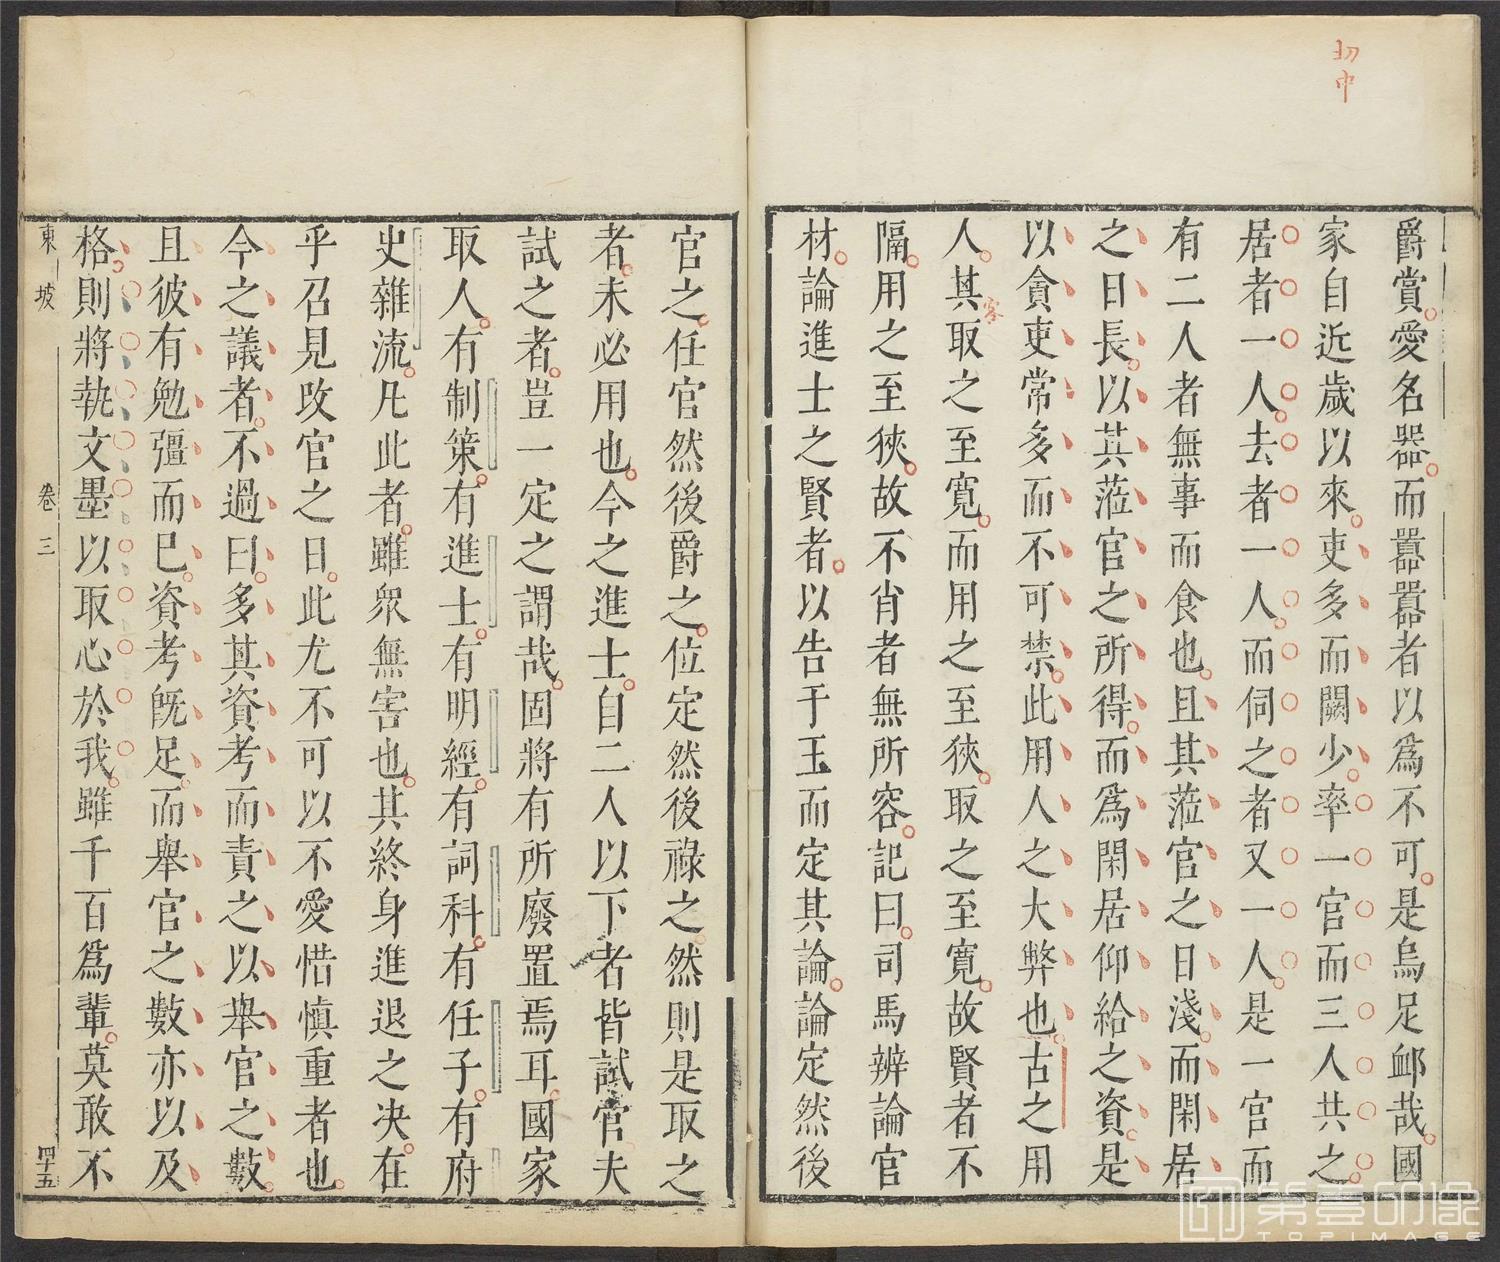 切中
爵賞愛名器而囂囂者以為不可是烏足卹哉國
家自近歲以來吏多而闕少率一官而三人共之
居者一人去者一人而伺之者又一人是一官而
有二人者無事而食也且其蒞官之日淺而閑居
之日長以其蒞官之所得而為閑居仰給之資是
以貪吏常多而不可禁此用人之大弊也古之用
人其取之至寬而用之至狹取之至寬故賢者不
隔用之至狹故不肖者無所容記曰司馬辨論官
材論進士之賢者以告于王而定其論論定然後
官之任官然後爵之位定然後祿之然則是取之
者未必用也今之進士自二人以下者皆試官夫
試之者豈一定之謂哉固將有所廢置焉耳國家
取人有制策有進士有明經有詞科有任子有府
史雜流凡此者雖眾無害也其終身進退之决在
乎召見改官之日此尤不可以不愛惜慎重者也
今之議者不過曰多其資考而責之以舉官之數
且彼有勉彊而已資考既足而舉官之數亦以及
格則將執文墨以取必於我雖千百為輩莫敢不
東坡
卷三
四十五
第壹印像
TOPIMAGE